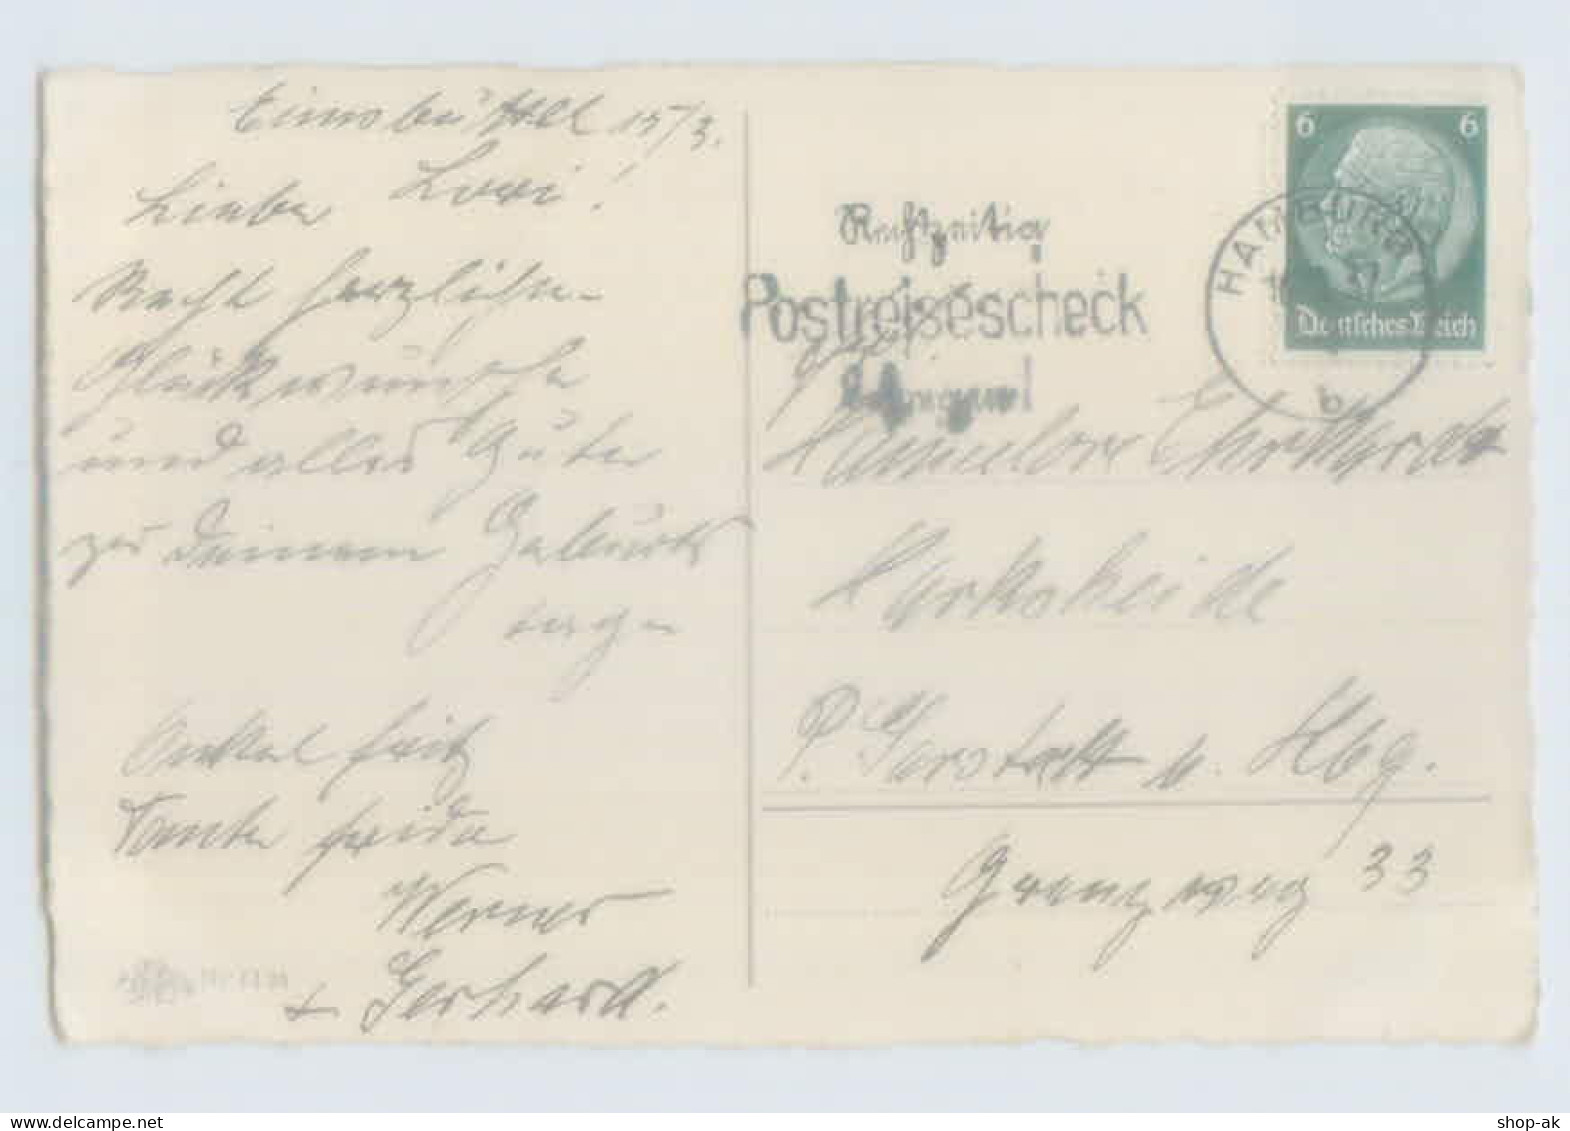 Eimsbüttel 15/3.
Liebe Lori!
Recht herzliche
Glückwünsche
und alles Gute
zu Deinem Geburts
tage
Onkel Fritz
Tante Frida
Werner
+ Gerhard.
Rechtzeitig
Postreisescheck
6 6
Deutsches Reich
HAMBURG
b
Hannelore
Harksheide
P. Garstedt b. Hbg.
Grenzweg 33
shop-ak